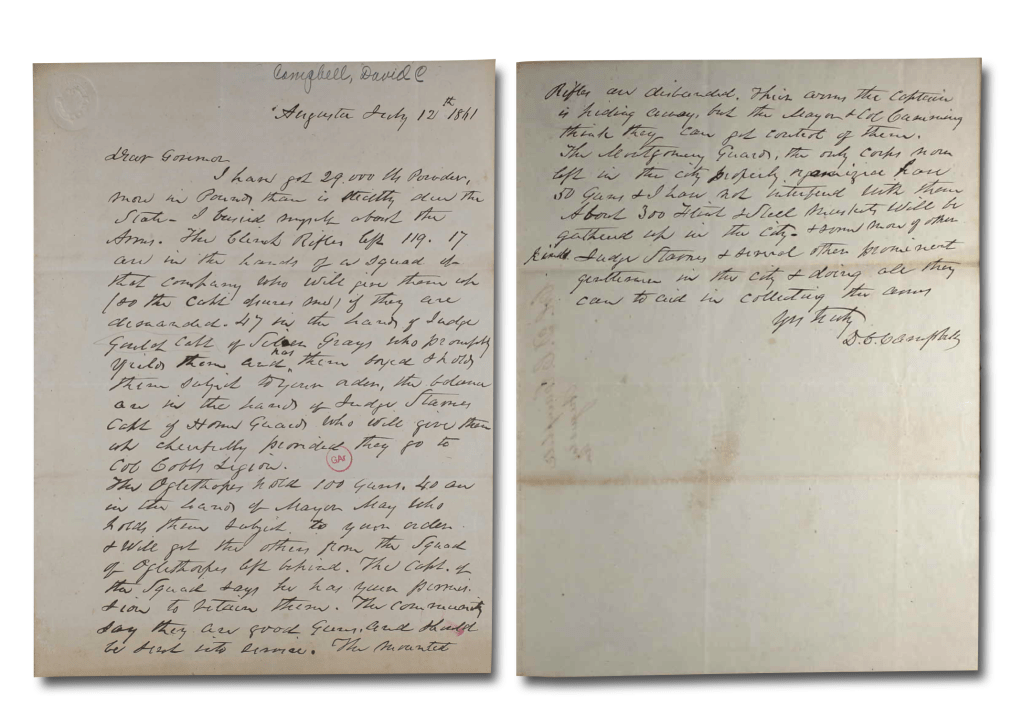 Campbell, David C
Augusta July 12th 1861
Dear Governor
I have got 29.000 lbs Powder,
more in Pounds than is due the
State - I busied myself about the
Arms. The Clinch Rifles left 119. 17
are in the hands of a squad of
that company who will give them up
(so the Capt assures me) if they are
demanded. 47 in the hands of Judge
Gould Capt of Silver Grays who promptly
yields them and has them boxed & holds
them subject to your orders, the balance
are in the hands of Judge Starnes
Capt of Home Guards who will give them
up cheerfully provided they go to
Col Cobbs Legion.
GAr
The Oglethorpes hold 100 Guns. 40 are
in the hands of Mayor May who
holds them subject to your orders
& will get the others from the Squad
of Oglethorpes left behind. The Capt. of
the Squad says he has your permis-
sion to retain them. The community
say they are good Guns, and should
be sent into service. The mounted
Rifles are disbanded. Their arms the Captain
is hiding away, but the Mayor & Col Cumming
think they can get control of them.
The Montgomery Guards, the only corps now
left in the city properly organized have
50 Guns & I have not interfered with them
About 300 Flint & Steel Muskets will be
gathered up in the city - & some more of other
kinds Judge Starnes & several other prominent
gentlemen in the city & doing all they
can to aid in collecting the arms
Yrs truly
D. C. Campbell